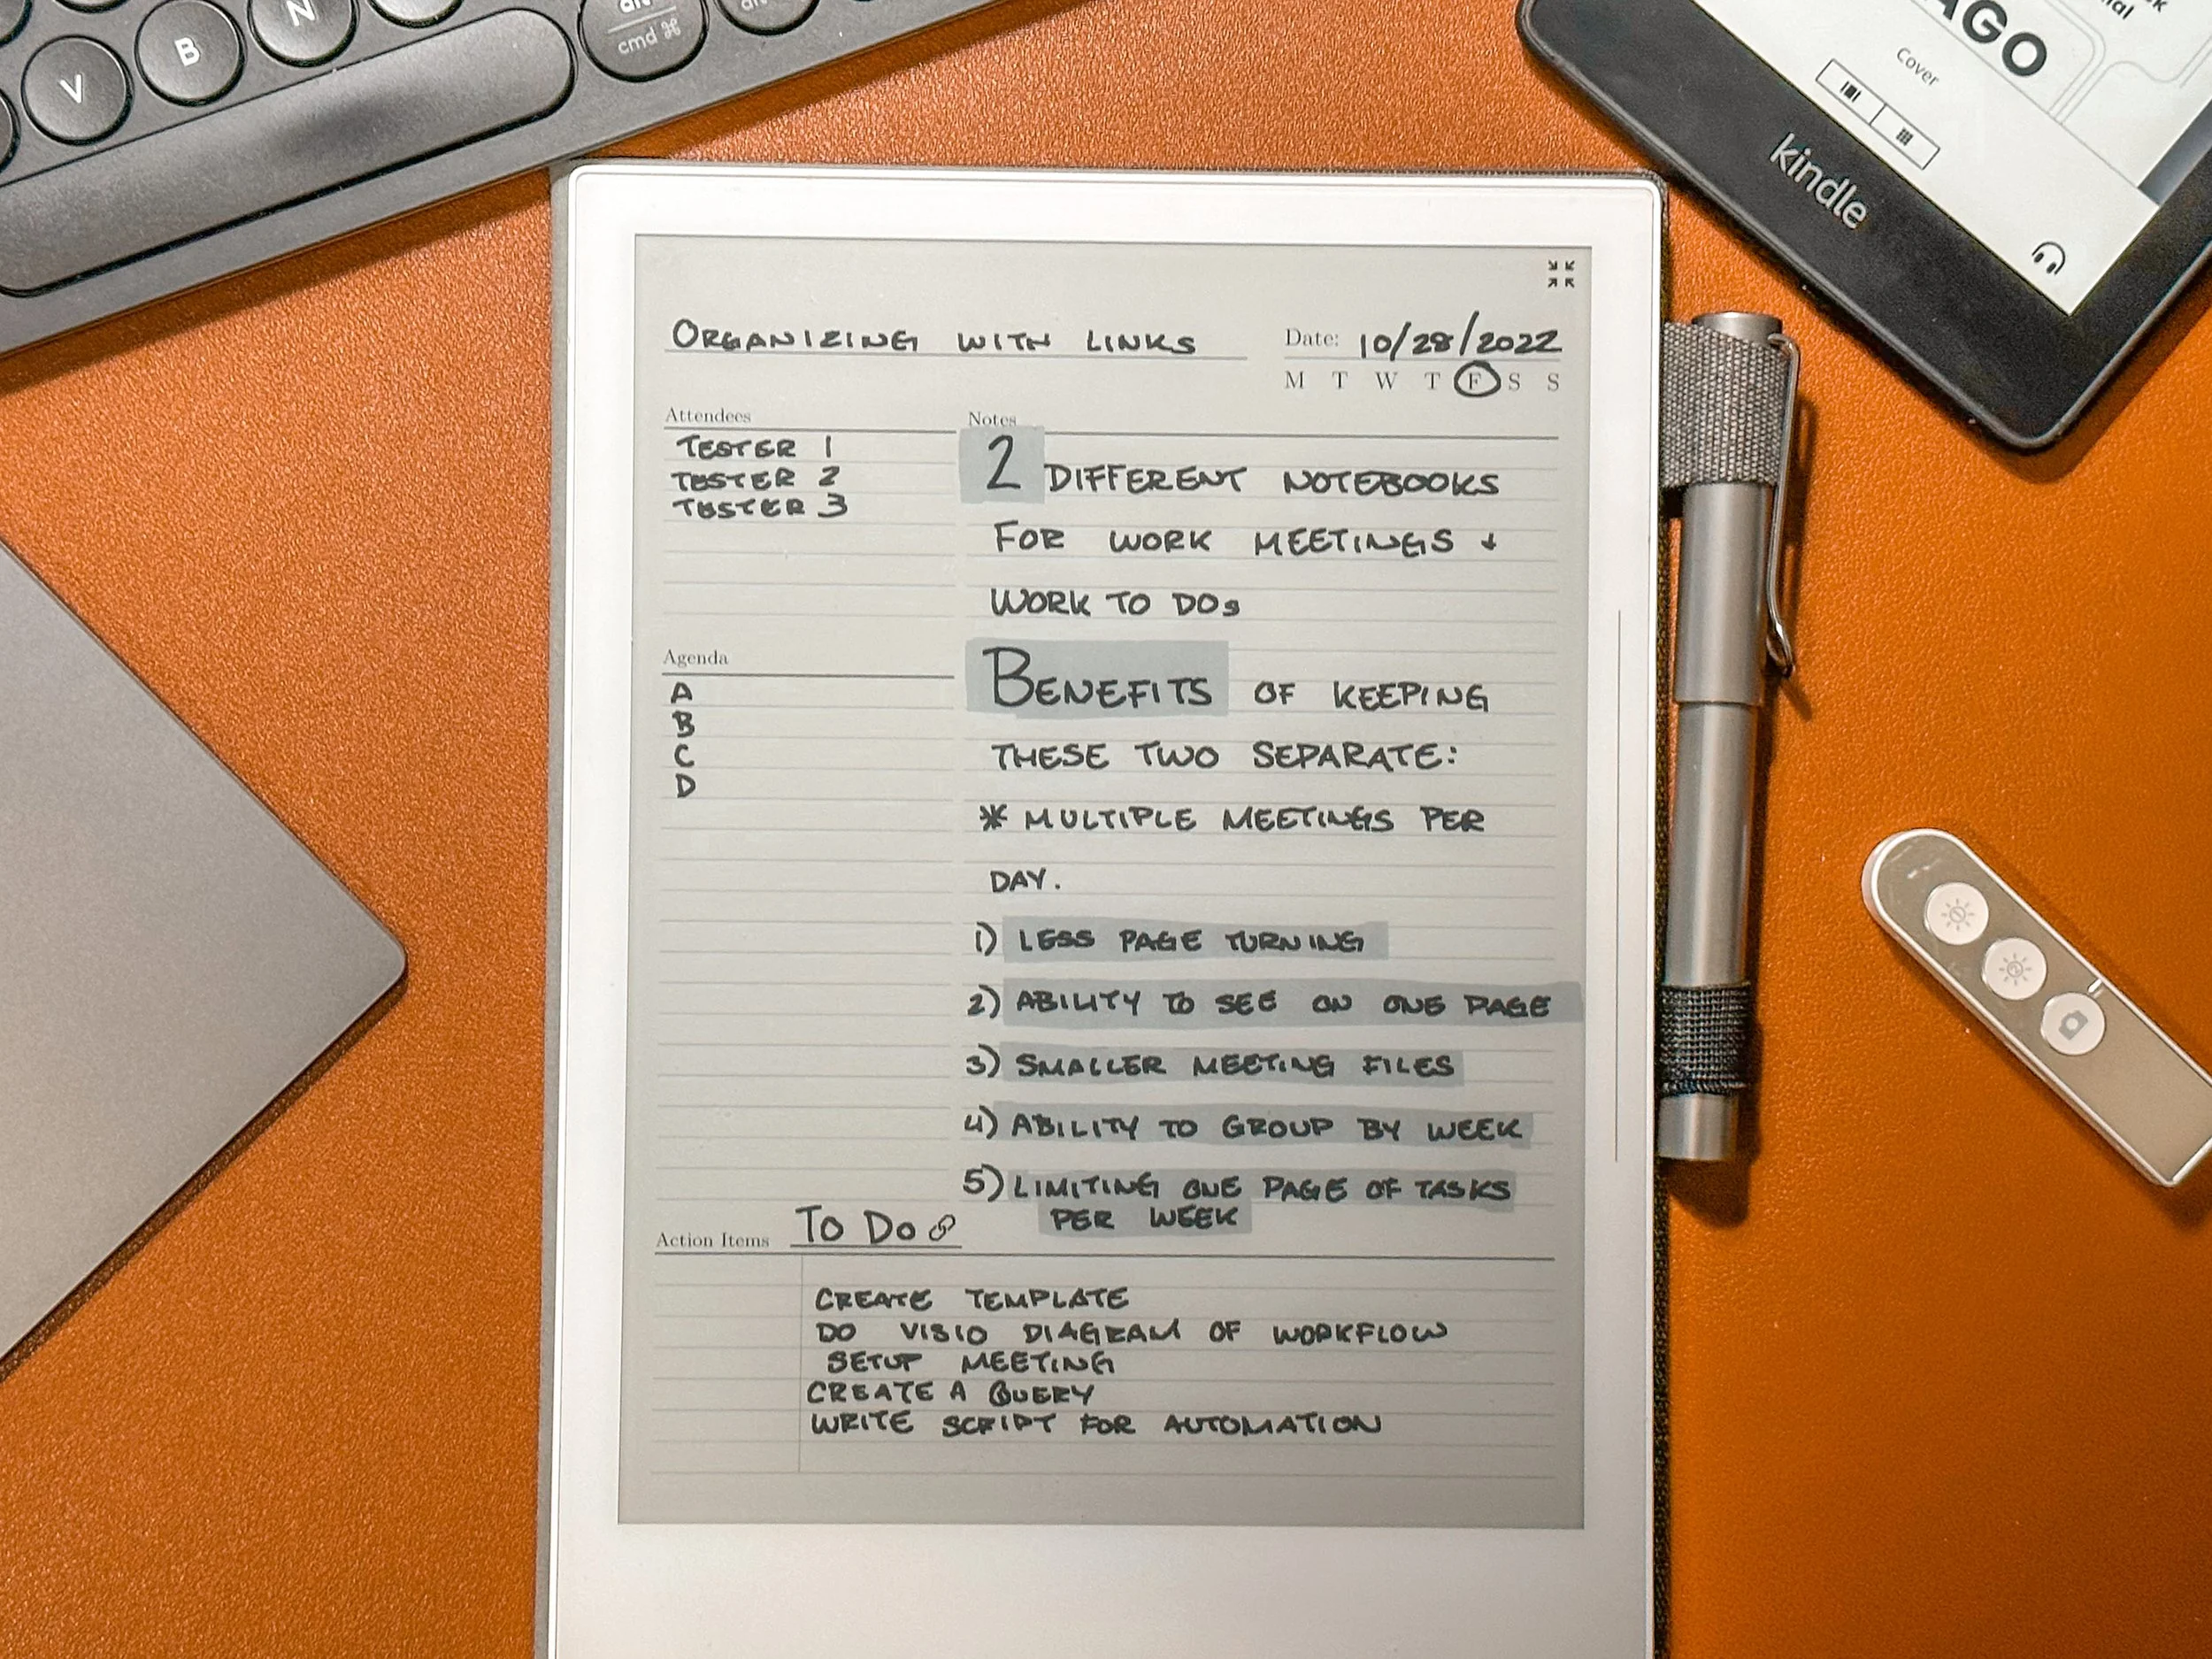 V B N alt
cmd ⌘ alt
AGO
Cover
kindle
ORGANIZING WITH LINKS
Date: 10/28/2022
M T W T F S S
Attendees
TESTER 1
TESTER 2
TESTER 3
Agenda
A
B
C
D
Notes
2 DIFFERENT NOTEBOOKS
FOR WORK MEETINGS +
WORK TO DOs
BENEFITS OF KEEPING
THESE TWO SEPARATE:
* MULTIPLE MEETINGS PER
DAY.
1) LESS PAGE TURNING
2) ABILITY TO SEE ON ONE PAGE
3) SMALLER MEETING FILES
4) ABILITY TO GROUP BY WEEK
5) LIMITING ONE PAGE OF TASKS
PER WEEK
Action Items TO DO
CREATE TEMPLATE
DO VISIO DIAGRAM OF WORKFLOW
SETUP MEETING
CREATE A QUERY
WRITE SCRIPT FOR AUTOMATION